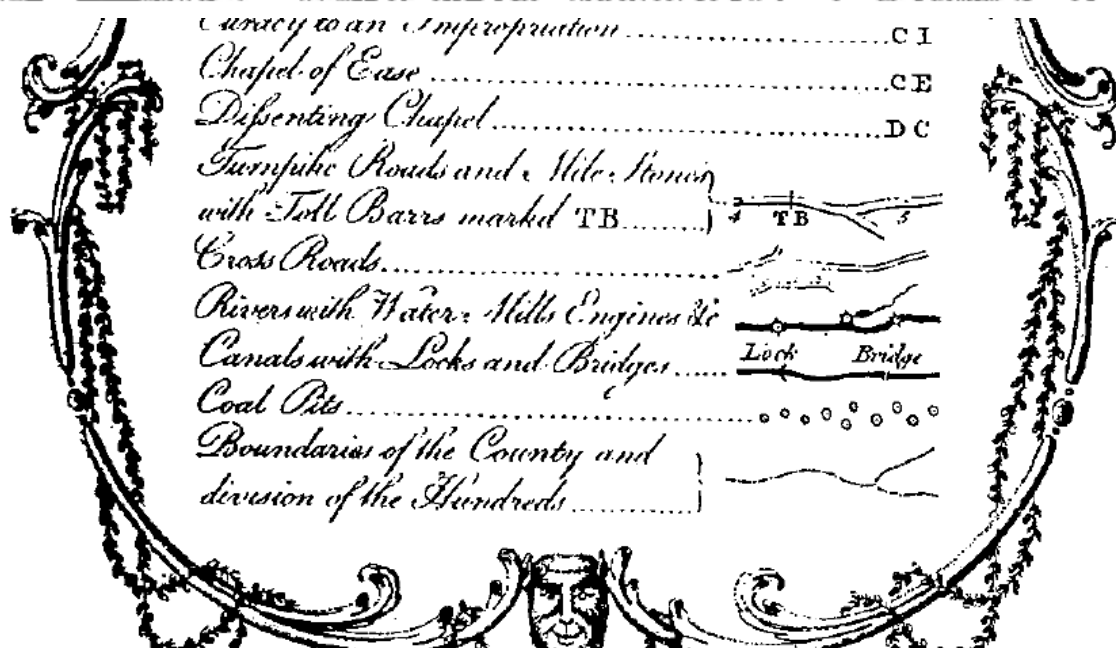 Curacy to an Impropriation ........ C I
Chapel of Ease ........ C E
Diſsenting Chapel ........ D C
Turnpike Roads and Mile Stones
with Toll Barrs markd TB ........ 4 TB 5
Cross Roads ........
Rivers with Water Mills Engines &c
Canals with Locks and Bridges ........ Lock Bridge
Coal Pits ........
Boundaries of the County and
division of the Hundreds ........